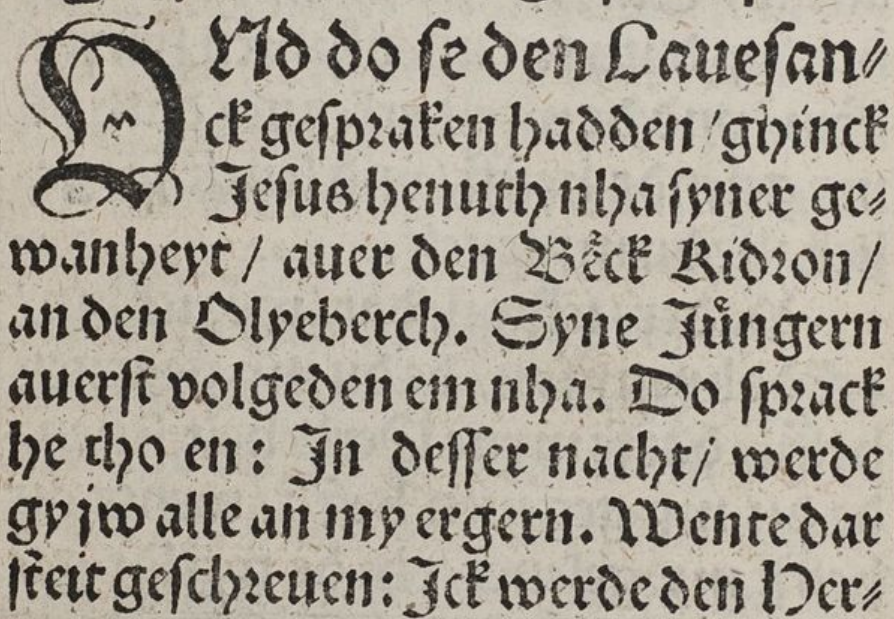 VNd do ſe den Laueſan⸗
ck geſpraken hadden / ghinck
Jeſus henuth nha ſyner ge⸗
wanheyt / auer den Beͤck Kidron /
an den Olyeberch. Syne Juͤngern
auerſt volgeden em nha. Do ſprack
he tho en: In deſſer nacht / werde
gy jw alle an my ergern. Wente dar
ſteit geſchreuen: Ick werde den Her⸗